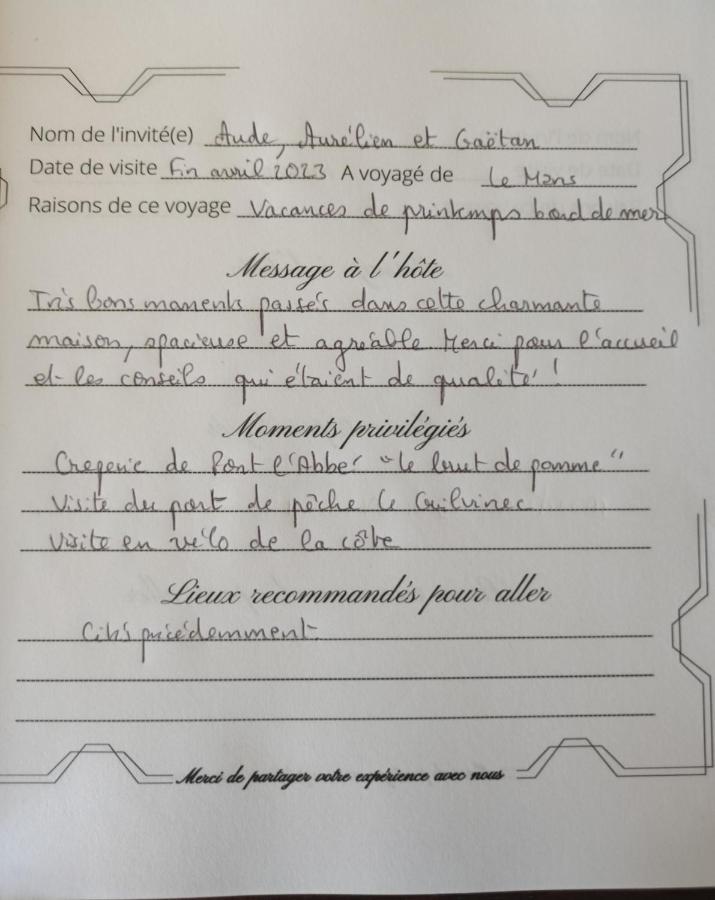 Nom de l'invité(e) Aude, Aurélien et Gaëtan
Date de visite Fin avril 2023 A voyagé de Le Mans
Raisons de ce voyage Vacances de printemps bord de mer
Message à l'hôte
Très bons moments passés dans cette charmante
maison, spacieuse et agréable Merci pour l'accueil
et les conseils qui étaient de qualité !
Moments privilégiés
Creperie de Pont l'Abbé "le bout de pomme"
Visite du port de pêche Le Guilvinec
Visite en vélo de la côte
Lieux recommandés pour aller
Cités précédemment
Merci de partager votre expérience avec nous